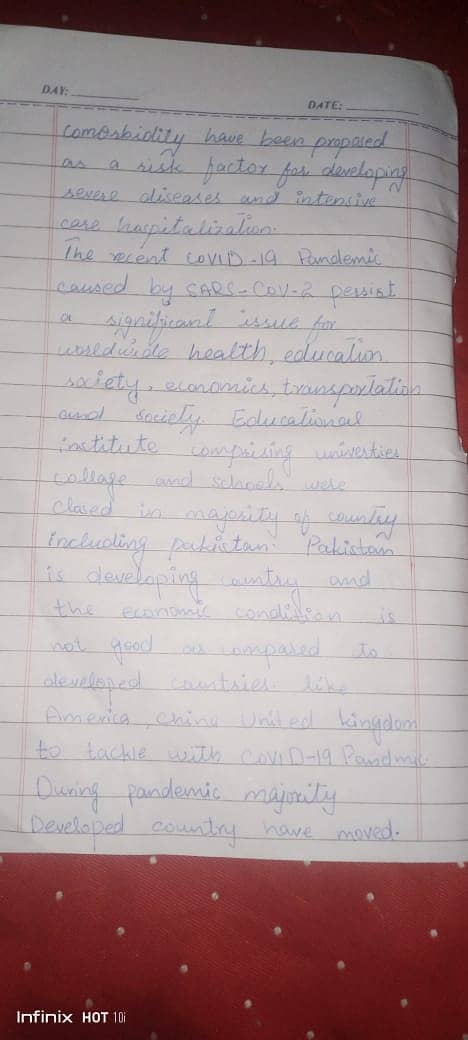 DAY:
DATE:
comorbidity have been proposed
as a risk factor for developing
severe diseases and intensive
care hospitalization.
The recent COVID-19 Pandemic
caused by SARS-COV-2 persist
a significant issue for
worldwide health, education,
society, economics, transportation
and society. Educational
institute comprising univesties
collage and schools were
closed in majority of country
including pakistan. Pakistan
is developing country and
the economic condition is
not good as compared to
developed countries like
America, china United kingdom
to tackle with COVID-19 Pandmic.
During pandemic majority
Developed country have moved.
Infinix HOT 10i